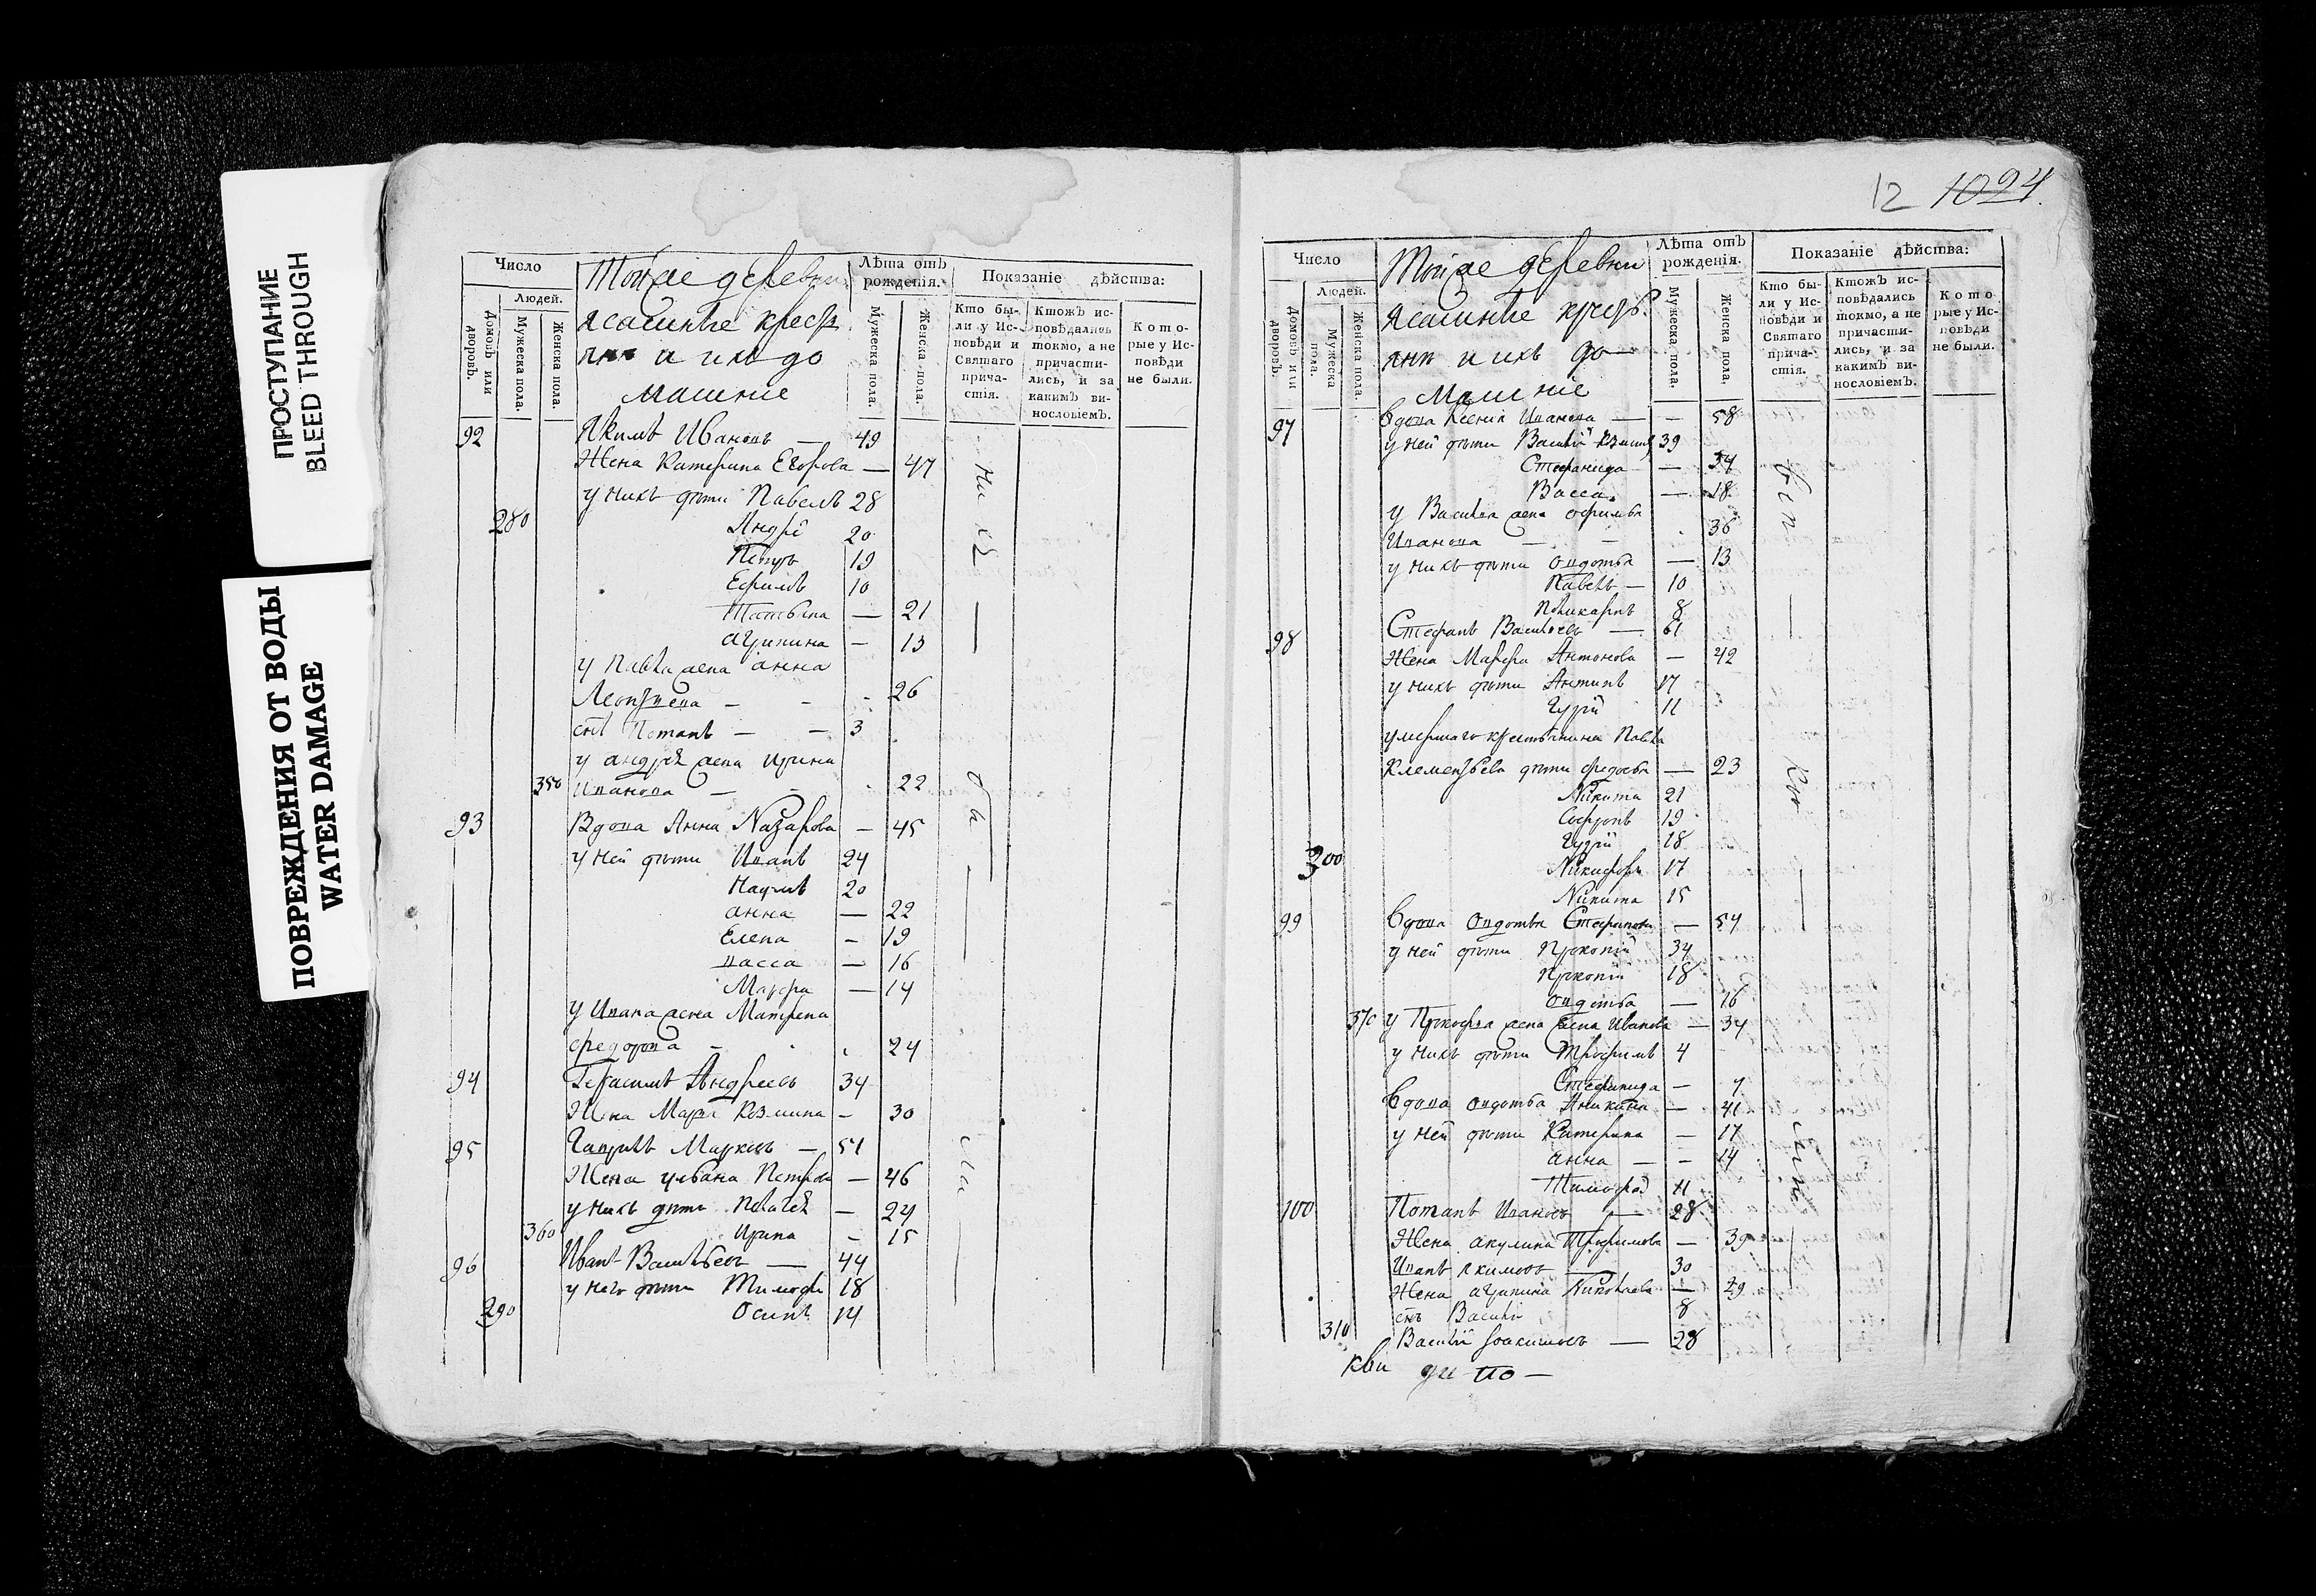 ПРОСТУПАНИЕ
BLEED THROUGH
ПОВРЕЖДЕНИЯ ОТ ВОДЫ
WATER DAMAGE
Число
Людей.
Домовъ или дворовъ.
Мужеска пола.
Женска пола.
Тойже деревни
ясашные крест
яня и ихъ до
машние
Лѣта отъ рожденія.
Мужеска пола.
Женска пола.
Показаніе дѣйства:
Кто были у Исповѣди и Святаго причастія.
Ктожъ исповѣдались токмо, а не причастились, и за какимъ винословіемъ.
Которые у Исповѣди не были.
92 Якимъ Ивановъ — 49
Жена Катерина Егорова — 47
у нихъ дѣти Павелъ 28
280 Андрей 20
Петръ 19
Ефимъ 10
Татьяна — 21
агрипина — 13
у Павла жена анна
Леонтьева — 26
сынъ Потапъ — 3
у андрея жена ирина
350 иванова — 22
93 Вдова Анна Назарова — 45
у ней дѣти Иванъ 24
Наумъ 20
анна — 22
Елена — 19
васса — 16
Марфа — 14
у Ивана жена Матрена
федорова 24
94 Герасимъ Андреевъ 34
Жена Марья Козмина — 30
95 Гаврилъ Марковъ — 51
Жена ульяна Петрова — 46
у нихъ дѣти Пелагея — 24
360 Ирина — 15
96 Иванъ Васильевъ — 44
у него дѣти Тимофей 18
290 Осипъ 14
12 1024.
Число
Людей.
Домовъ или дворовъ.
Мужеска пола.
Женска пола.
Тойже деревни
ясашные крестья
яня и ихъ до
машніе
Лѣта отъ рожденія.
Мужеска пола.
Женска пола.
Показаніе дѣйства:
Кто были у Исповѣди и Святаго причастія.
Ктожъ исповѣдались токмо, а не причастились, и за какимъ винословіемъ.
Которые у Исповѣди не были.
97 вдова Ксения Иванова — 58
у ней дѣти Василій 39
Стефанида — 34
Васса — 18
у Василья жена офимья
Иванова — 36
у нихъ дѣти овдотья — 13
Павелъ — 10
Поликарпъ 8
98 Стефанъ Васильевъ — 61
Жена Марфа Антонова — 42
у нихъ дѣти Антипъ 17
Гурій 11
умершаго крестьянина Павла
Клементьева дѣти федосья — 23
Никита 21
Софронъ 19
Гурій 18
300 Никифоръ 17
Никита 15
99 вдова овдотья Стефанова — 54
у ней дѣти Прокопій 34
Прокопій 18
овдотья — 16
370 у Прокофья жена Елена Иванова — 34
у нихъ дѣти Трофимъ 4
Стефанида — 7
вдова овдотья Аникина — 41
у ней дѣти Катерина — 17
анна — 14
Тимофей 11
100 Потапъ Ивановъ — 28
Жена акулина Трофимова — 39
Иванъ якимовъ 30
Жена агрипина Николаева — 29
сынъ Василій 8
310 Василій — 28